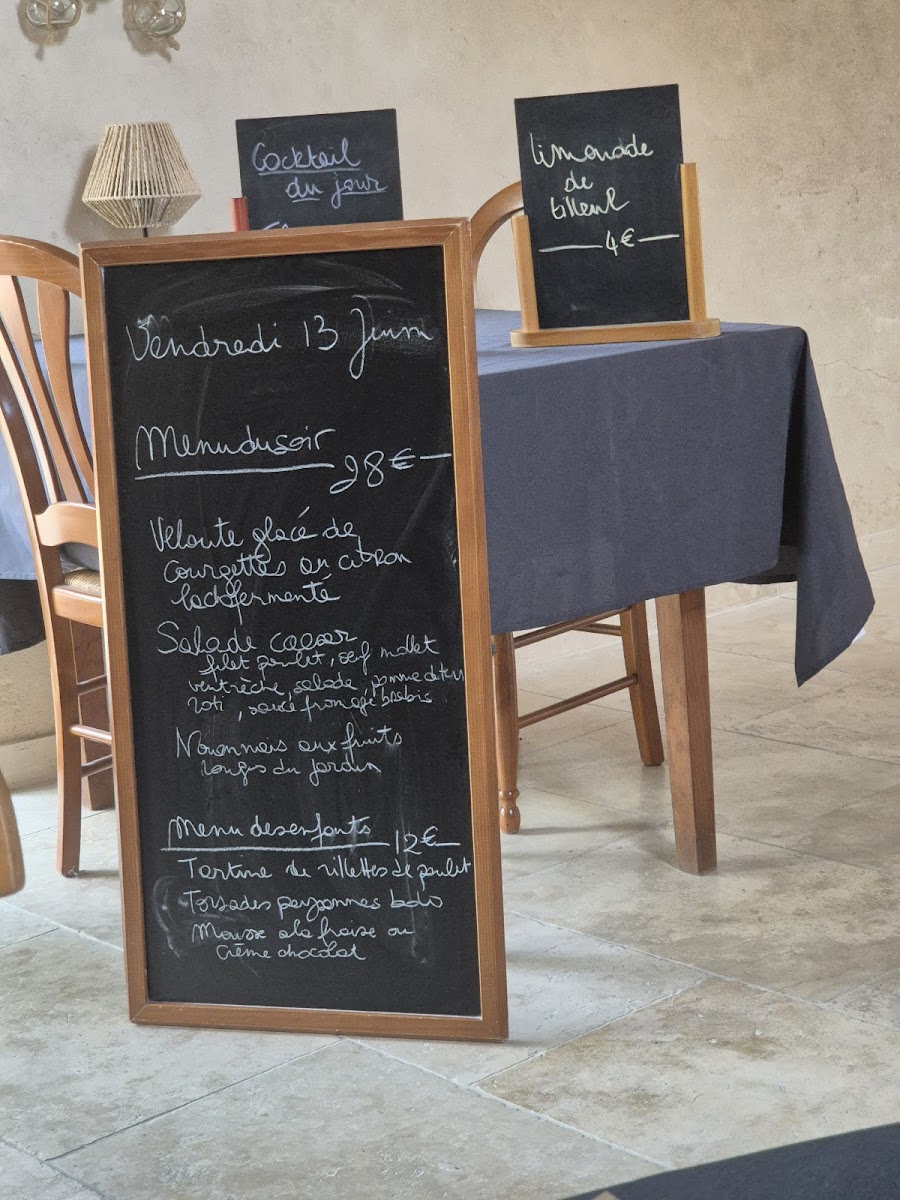 Cocktail
du jour
limonade
de
tilleul
4€
Vendredi 13 Juin
Menu du soir
28€
Velouté glacé de
courgettes au citron
lactofermenté
Salade caesar
filet poulet, œuf mollet
ventrèche, salade, pomme de terre
roti, sauce fromage brebis
aux fruits
rouges du jardin
Menu des enfants 12€
Tartine de rillettes de poulet
Torsades paysannes bolo
Mousse à la fraise ou
crème chocolat